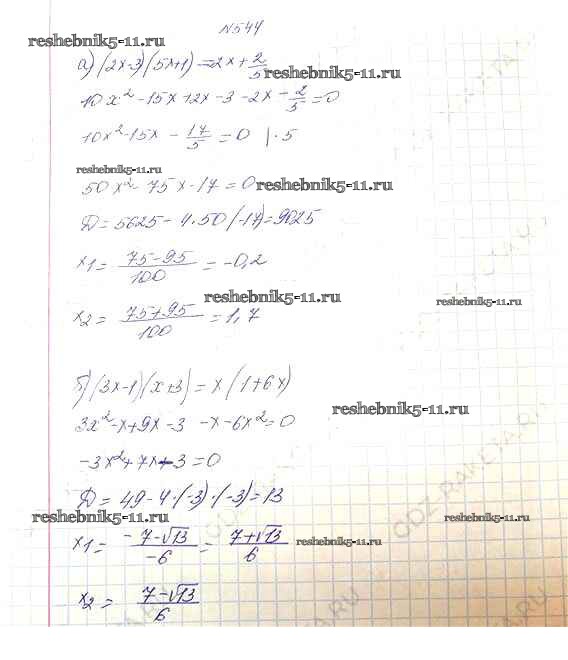 №544
reshebnik5-11.ru
а) (2x-3)(5x+1) = 2x + 2/5
reshebnik5-11.ru
10x² - 15x + 2x - 3 - 2x - 2/5 = 0
10x² - 15x - 17/5 = 0 | · 5
reshebnik5-11.ru
50x² - 75x - 17 = 0
reshebnik5-11.ru
Д = 5625 - 4 · 50 (-17) = 9025
x1 = 75-95/100 = -0,2
reshebnik5-11.ru
reshebnik5-11.ru
x2 = 75+95/100 = 1,7
б) (3x-1)(x+3) = x(1+6x)
reshebnik5-11.ru
3x² - x + 9x - 3 - x - 6x² = 0
-3x² + 7x - 3 = 0
Д = 49 - 4 · (-3) · (-3) = 13
reshebnik5-11.ru
reshebnik5-11.ru
x1 = -7-√13/-6 = 7+√13/6
reshebnik5-11.ru
x2 = 7-√13/6
GDZ-RAKETA.RU